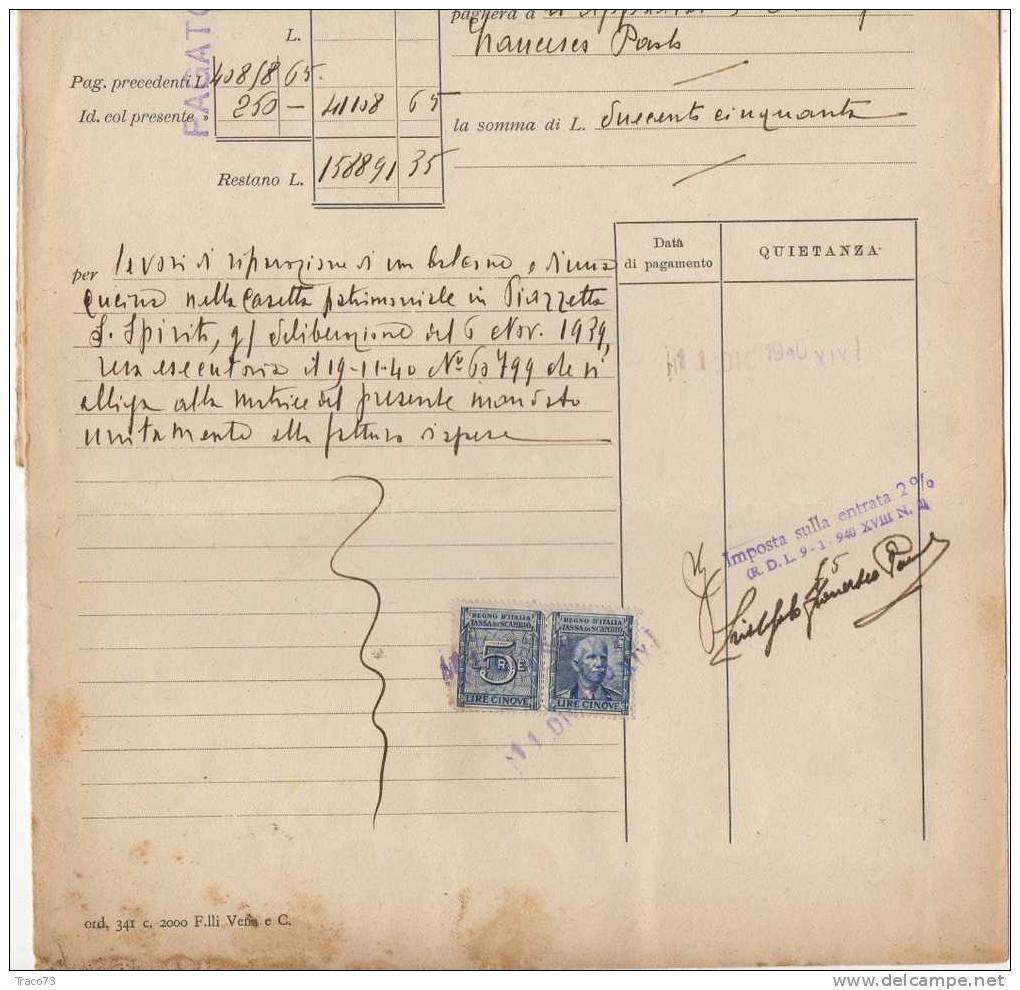 pagherà a
L.
Francesco Paolo
Pag. precedenti L. 40858 65
Id. col presente 250 — 41108 65
la somma di L. duecento cinquanta
Restano L. 158891 35
PAGATO
Data di pagamento
QUIETANZA
per lavori di riparazione di un balcone e di una
cucina nella Casetta patrimoniale in Piazzetta
S. Spirito, g/ deliberazione del 6 Nov. 1939,
resa esecutoria il 19-11-40 No 60799 che si
alliga alla matrice del presente mandato
unitamente alla fattura
Imposta sulla entrata 2%
(R. D. L. 9-1-940 XVIII N. 2)
Francesco Paolo
REGNO D'ITALIA
TASSA DI SCAMBIO
5
LIRE
LIRE CINQUE
REGNO D'ITALIA
TASSA DI SCAMBIO
LIRE CINQUE
11 DIC
ord. 341 c. 2000 F.lli Vena e C.
Traco73
delcampe.net